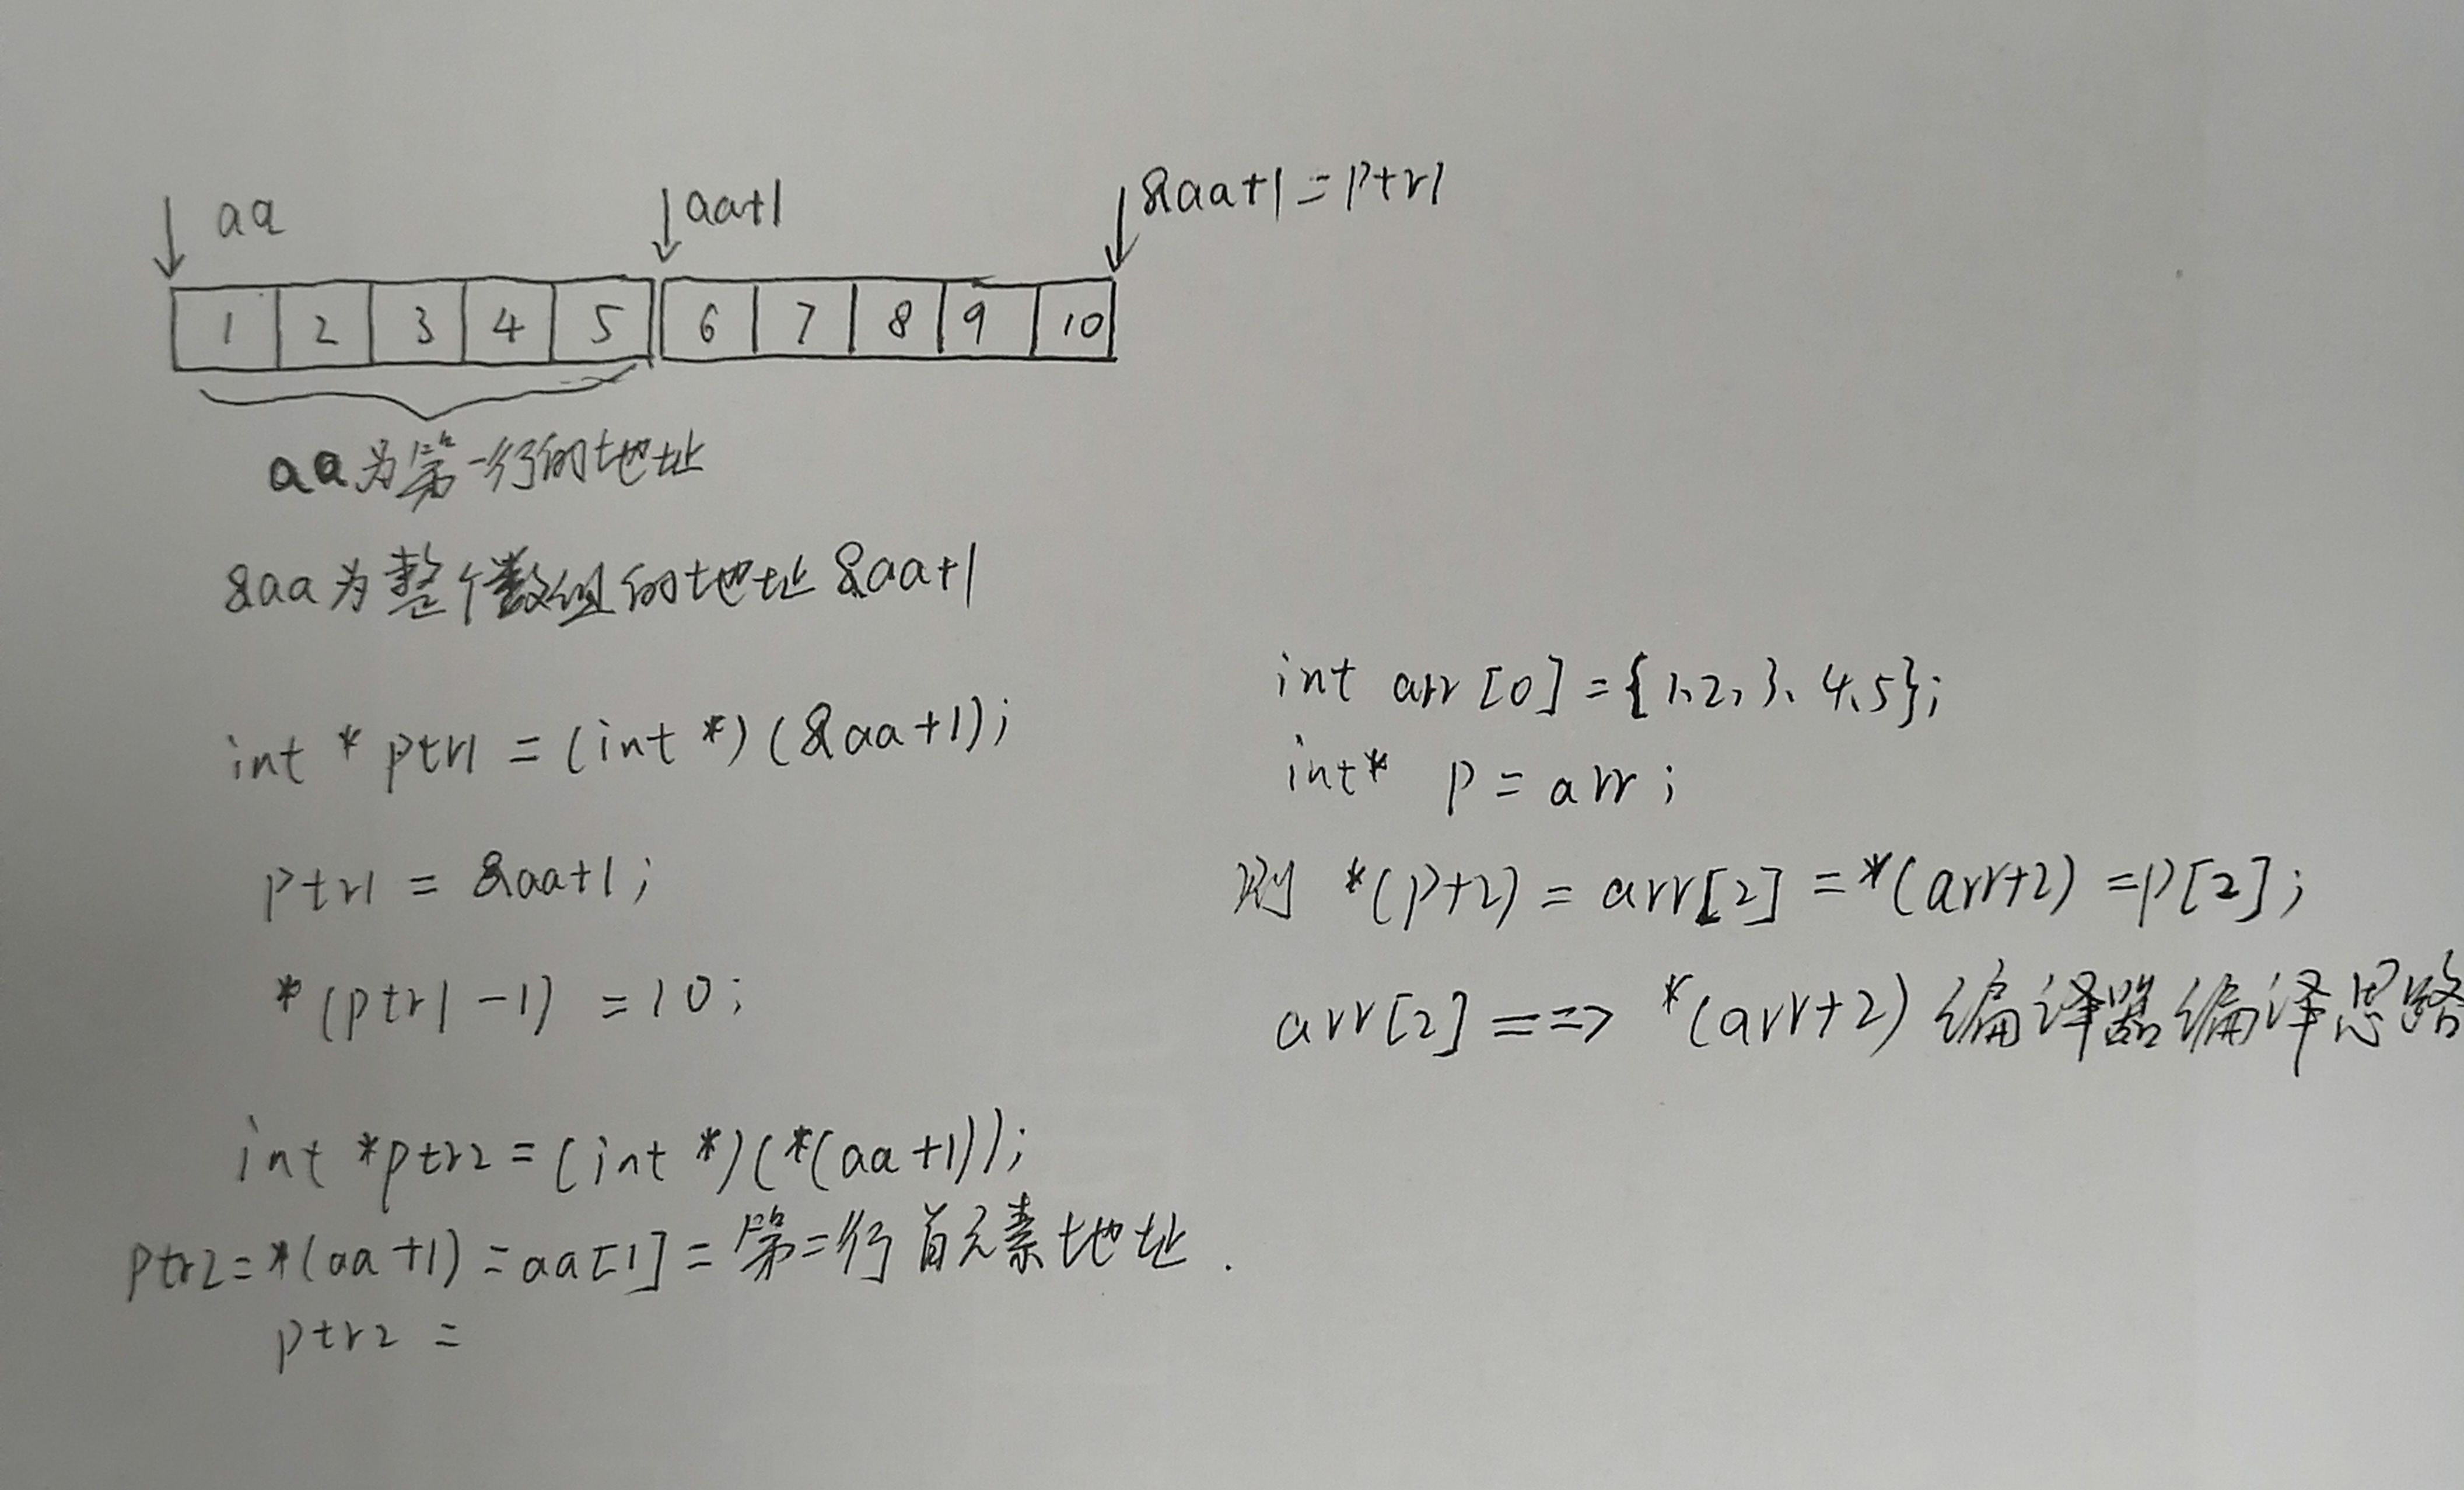 aa
aa+1
&aa+1=ptr1
1 2 3 4 5 6 7 8 9 10
aa为第一行的地址
&aa为整个数组的地址 &aa+1
int * ptr1 = (int *)(&aa+1);
ptr1 = &aa+1;
*(ptr1-1) = 10;
int *ptr2 = (int *)(*(aa+1));
ptr2=*(aa+1)=aa[1]=第二行首元素地址.
ptr2 =
int arr[0]={1、2,3、4、5};
int* p = arr;
则 *(p+2) = arr[2] =*(arr+2) =p[2];
arr[2] ==> *(arr+2) 编译器编译思路